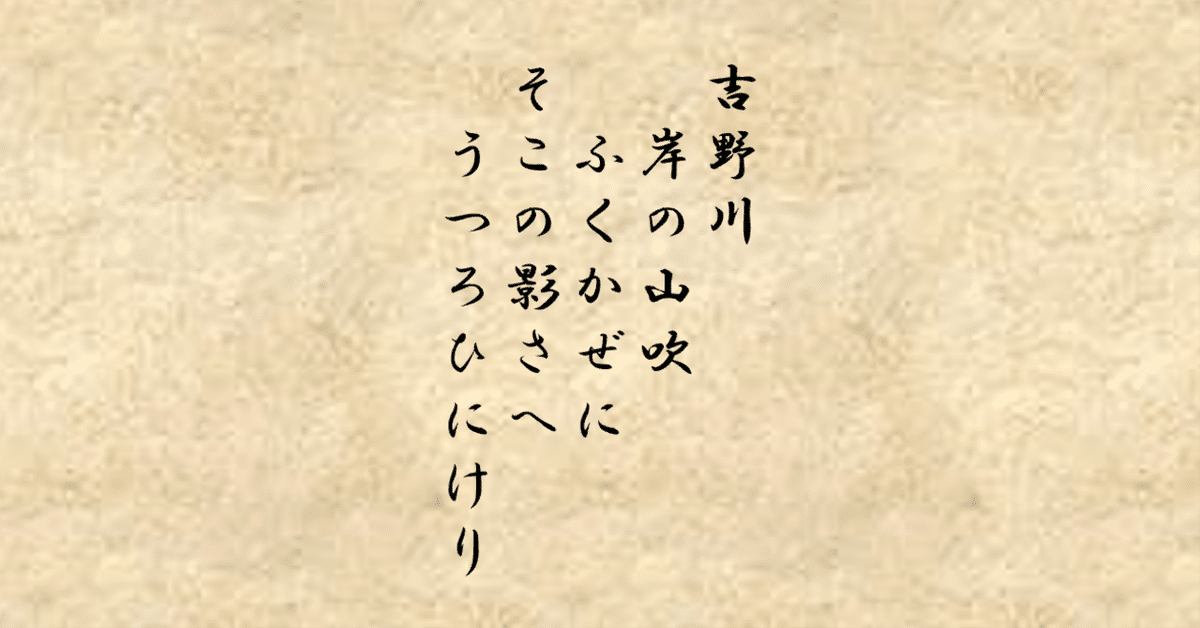 吉野川
岸の山吹
ふくかぜに
そこの影さへ
うつろひにけり